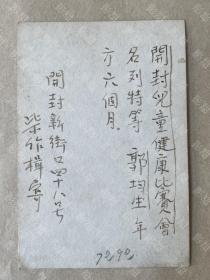 開封兒童健康比賽會
名列特等 郭均生 年
方六個月.
開封新街口四十八号
柴作楫寄
7290.